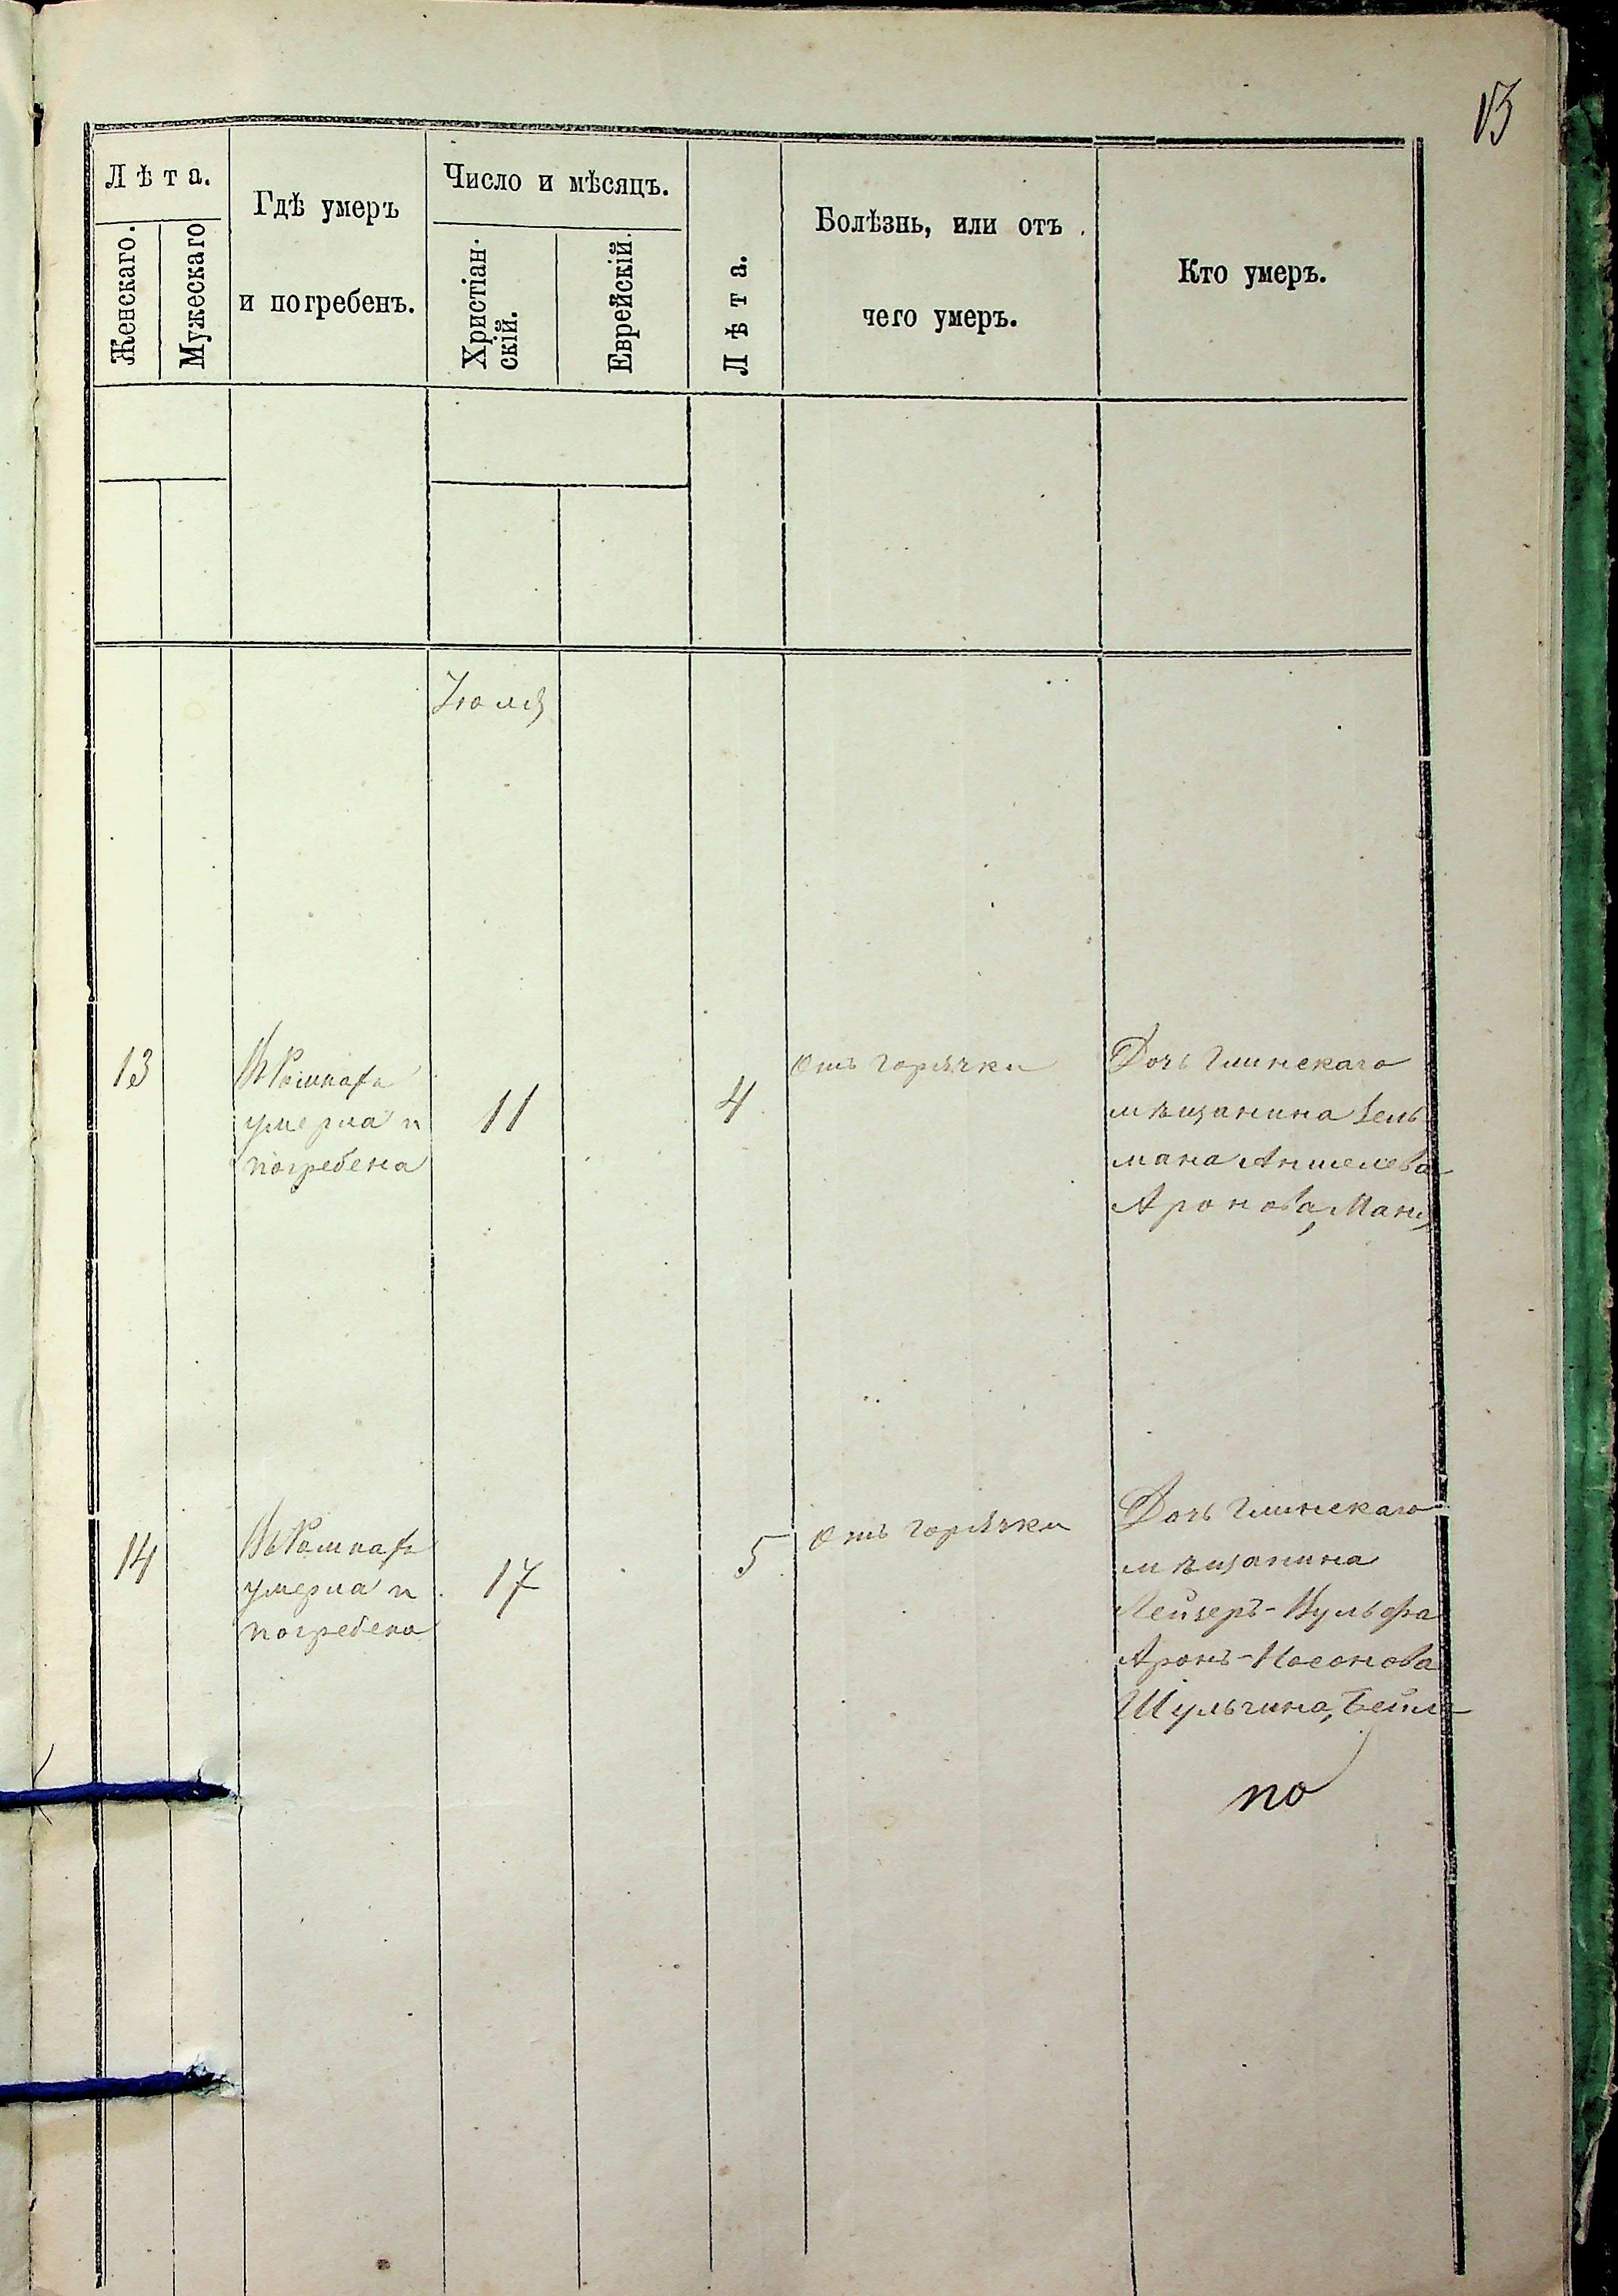 13
Лѣта.
Женскаго.
Мужескаго
Гдѣ умеръ
и погребенъ.
Число и мѣсяцъ.
Христіан-
скій.
Еврейскій.
Лѣта.
Болѣзнь, или отъ
чего умеръ.
Кто умеръ.
Іюля
13
Въ Ромнахъ
умерла и
погребена
11
4
Отъ горячки
Дочь Глинскаго
мѣщанина Зель
мана Аншелева
Аронова, Маня
14
Въ Ромнахъ
умерла и
погребена
17
5
Отъ горячки
Дочь Глинскаго
мѣщанина
Лейзеръ-Вульфа
Аронъ-Носонова
Шульгина, Бейля
по